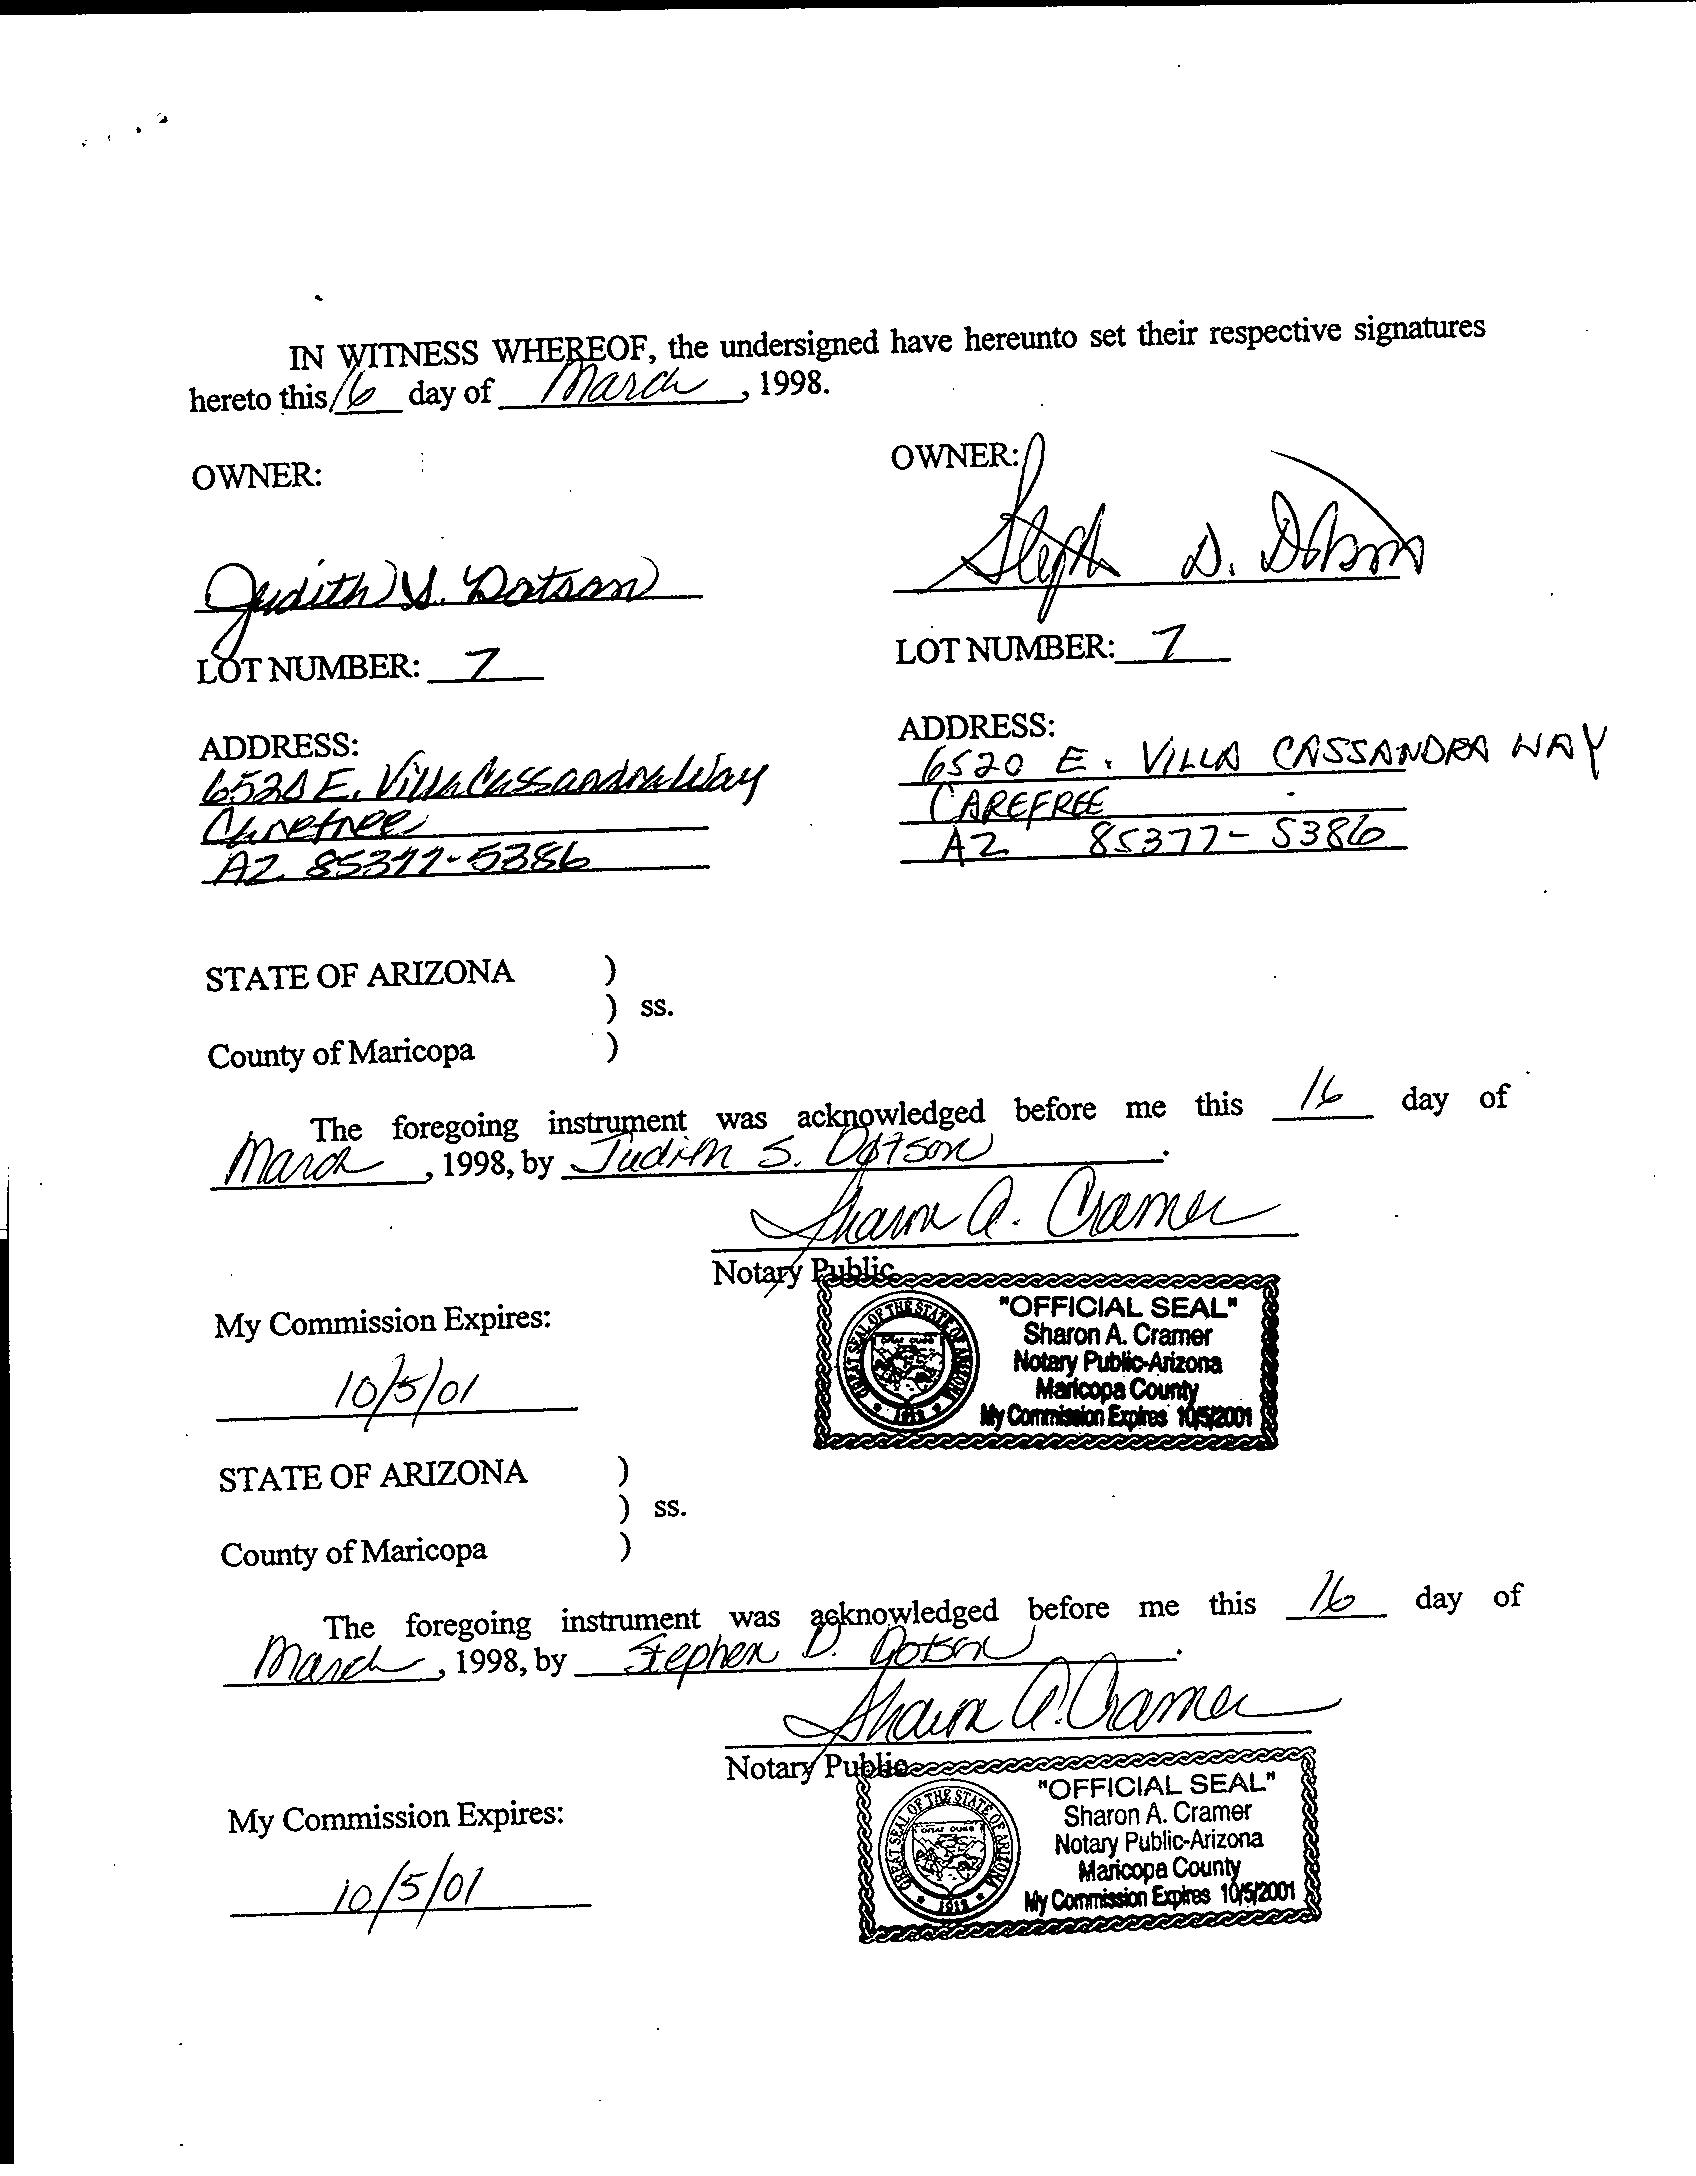 IN WITNESS WHEREOF, the undersigned have hereunto set their respective signatures
hereto this 16 day of March, 1998.
OWNER:
Judith S. Dotson
LOT NUMBER: 7
ADDRESS:
6520 E. Villa Cassandra Way
Carefree
AZ 85377-5386
OWNER:
Steph D. Dotson
LOT NUMBER: 7
ADDRESS:
6520 E. VILLA CASSANDRA WAY
CAREFREE
AZ 85377-5386
STATE OF ARIZONA )
) ss.
County of Maricopa )
The foregoing instrument was acknowledged before me this 16 day of
March, 1998, by Judith S. Dotson.
Sharon A. Cramer
Notary Public
My Commission Expires:
10/5/01
"OFFICIAL SEAL"
Sharon A. Cramer
Notary Public-Arizona
Maricopa County
My Commission Expires 10/5/2001
GREAT SEAL OF THE STATE OF ARIZONA
1912
STATE OF ARIZONA )
) ss.
County of Maricopa )
The foregoing instrument was acknowledged before me this 16 day of
March, 1998, by Stephen D. Dotson.
Sharon A. Cramer
Notary Public
My Commission Expires:
10/5/01
"OFFICIAL SEAL"
Sharon A. Cramer
Notary Public-Arizona
Maricopa County
My Commission Expires 10/5/2001
GREAT SEAL OF THE STATE OF ARIZONA
1912